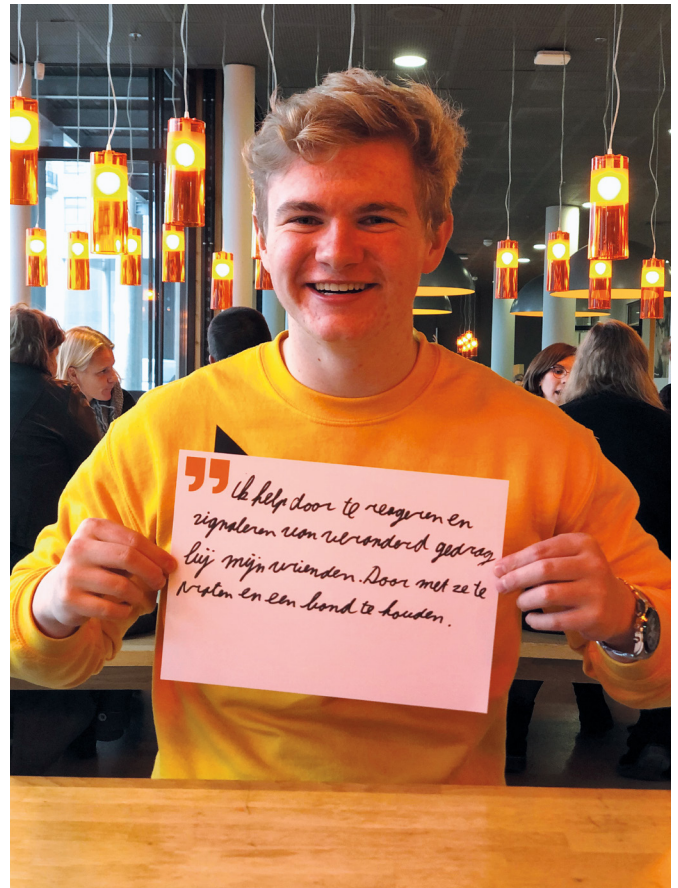 " Ik help door te reageren en
signaleren van veranderd gedrag
bij mijn vrienden. Door met ze te
praten en een band te houden.